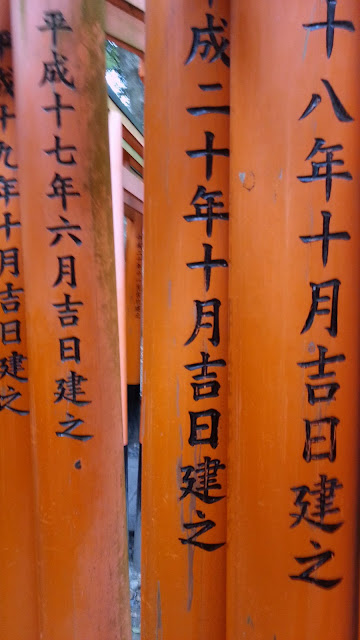 十八年十月吉日建之
成二十年十月吉日建之
平成十七年六月吉日建之
成十九年十月吉日建之